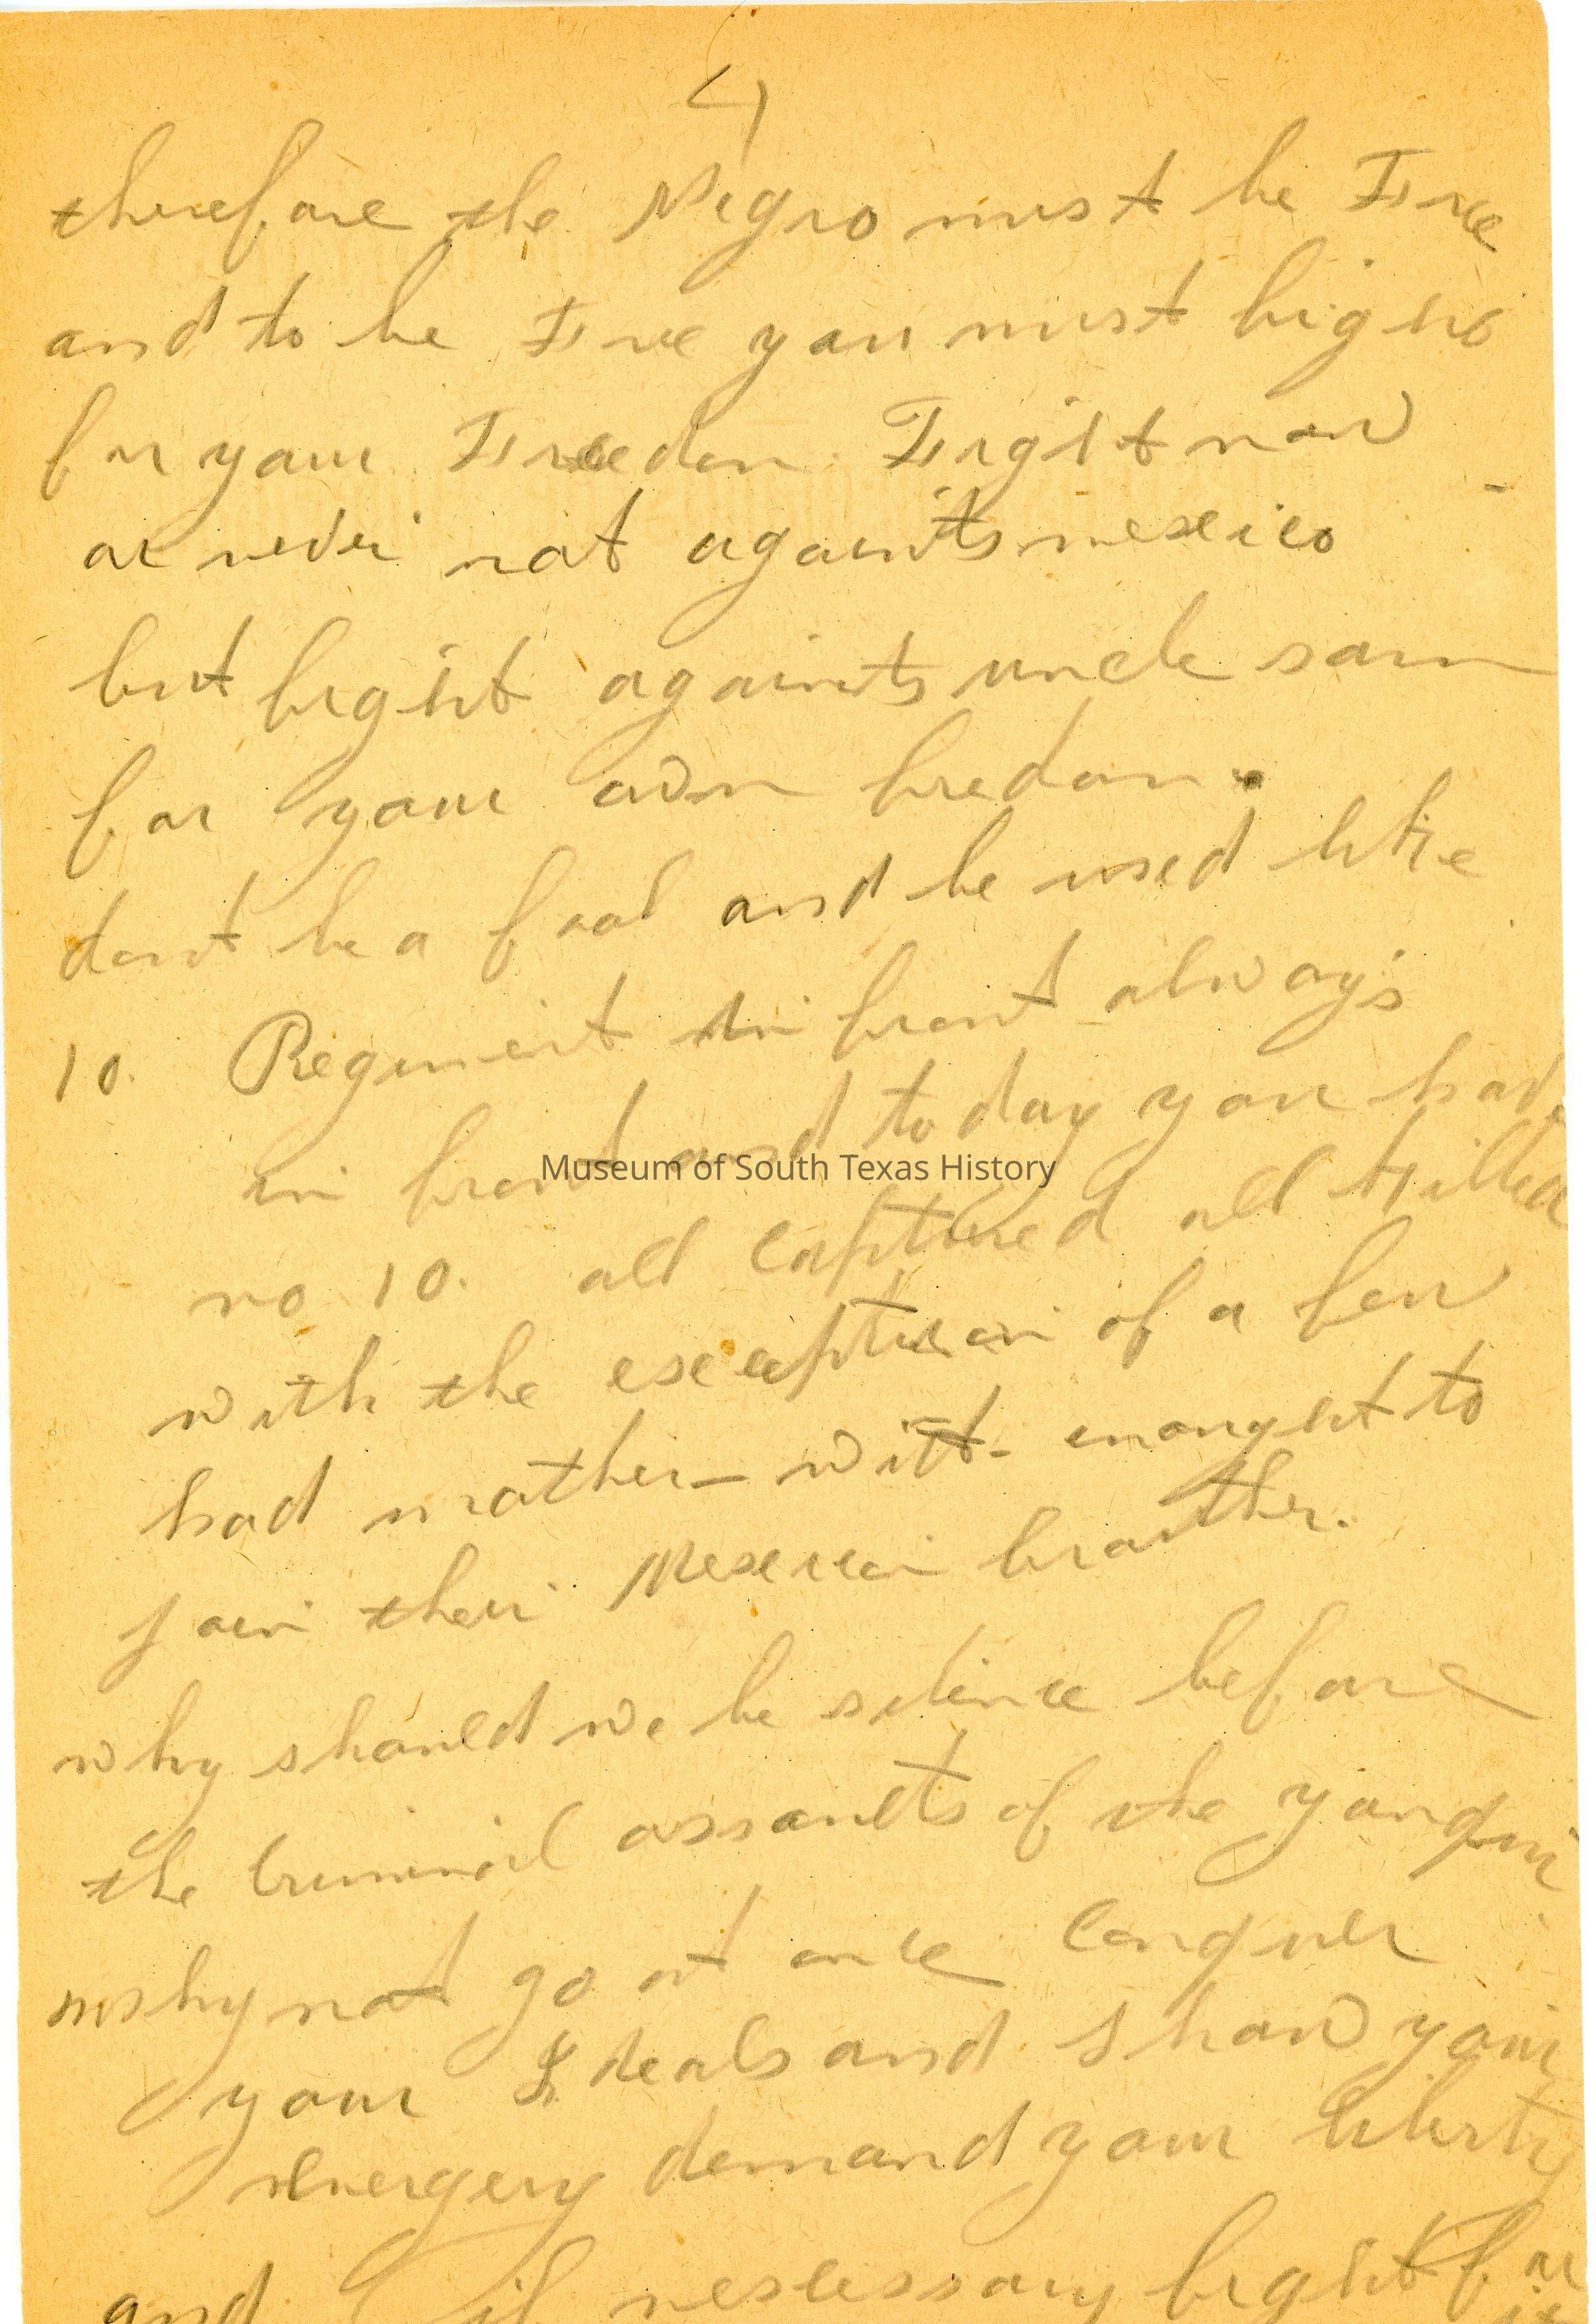 4
therefore the Negro must be Free
and to be Free you must fight
for your Freedon. Fight now
or never not againts mexico
but fight againts uncle sam
for your own fredon.
dont be a fool and be used like
10. Regiment in front always
in front and to day you had
no 10. all captured all killed
with the exception of a few
had mother-witt- enought to
join their Mexican brouther.
why should we be silence before
the criminal assaults of the yanqui
why not go at once conquer
your Ideals and show your
energery demand your liberty
and if nescessary fight for
Museum of South Texas History